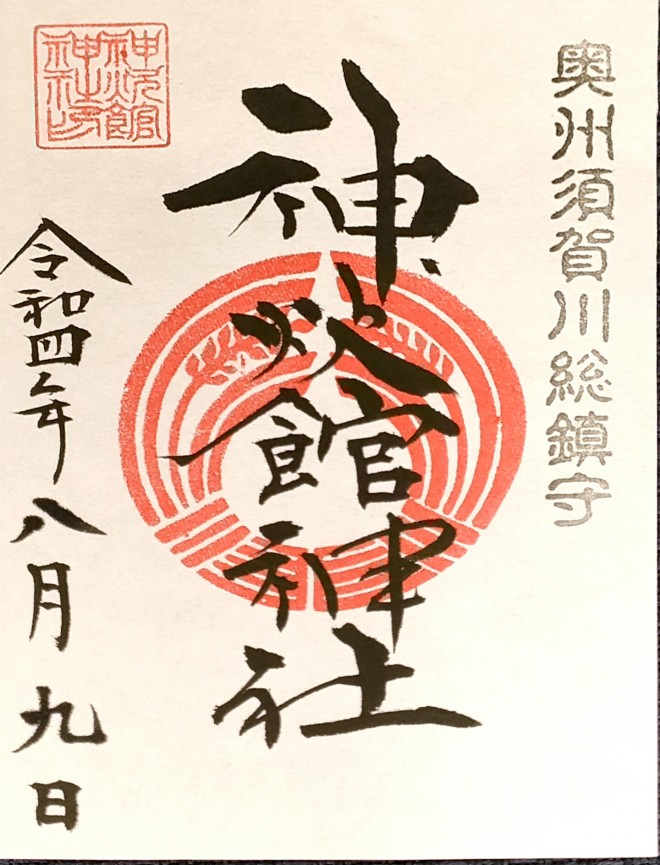 奥州須賀川総鎮守
神炊館神社
令和四年八月九日
神炊館
神社印